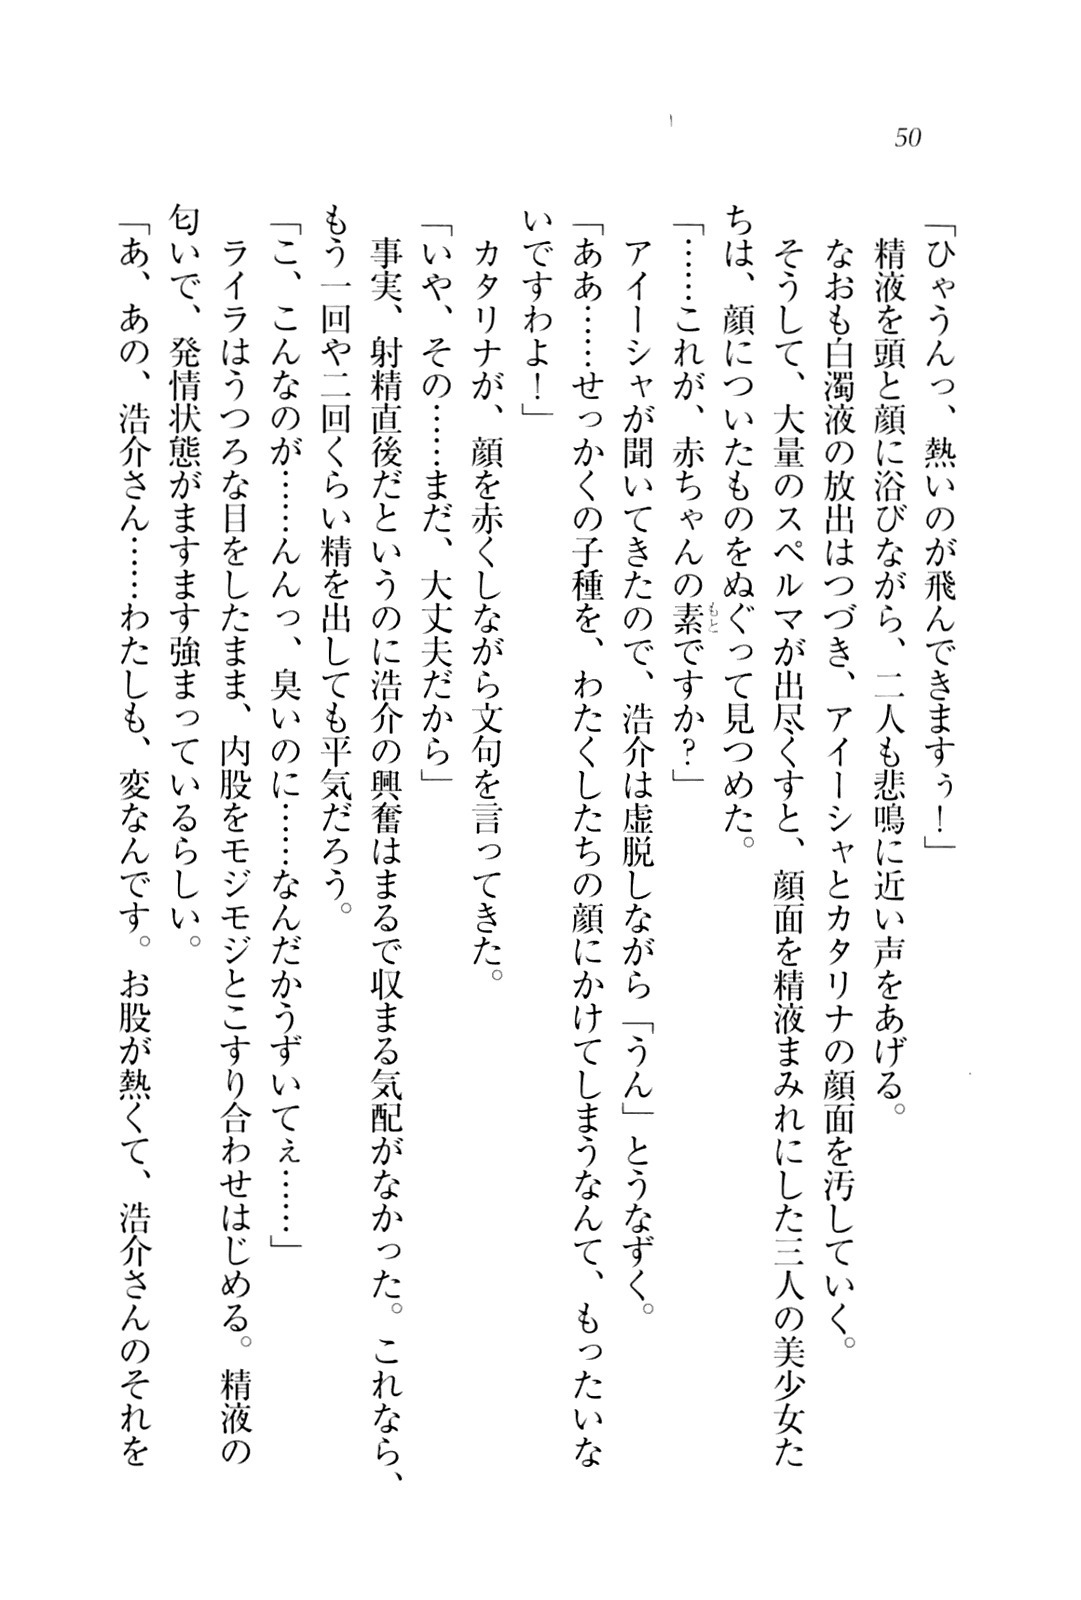 50
「ひゃうんっ、熱いのが飛んできますぅ！」
精液を頭と顔に浴びながら、二人も悲鳴に近い声をあげる。
なおも白濁液の放出はつづき、アイーシャとカタリナの顔面を汚していく。
そうして、大量のスペルマが出尽くすと、顔面を精液まみれにした三人の美少女た
ちは、顔についたものをぬぐって見つめた。
「……これが、赤ちゃんの素もとですか？」
アイーシャが聞いてきたので、浩介は虚脱しながら「うん」とうなずく。
「ああ……せっかくの子種を、わたくしたちの顔にかけてしまうなんて、もったいな
いですわよ！」
カタリナが、顔を赤くしながら文句を言ってきた。
「いや、その……まだ、大丈夫だから」
事実、射精直後だというのに浩介の興奮はまるで収まる気配がなかった。これなら、
もう一回や二回くらい精を出しても平気だろう。
「こ、こんなのが……んんっ、臭いのに……なんだかうずいてぇ……」
ライラはうつろな目をしたまま、内股をモジモジとこすり合わせはじめる。精液の
匂いで、発情状態がますます強まっているらしい。
「あ、あの、浩介さん……わたしも、変なんです。お股が熱くて、浩介さんのそれを